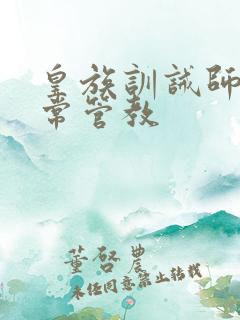 皇族訓誡師日
常管教
董啓農
未任同意禁止转载